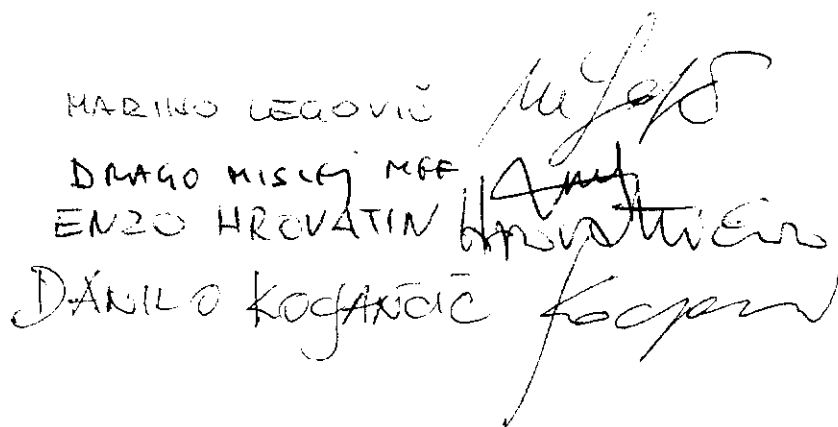 MARINO LEGOVIČ
DRAGO MISLEJ MEF
ENZO HROVATIN HROVATIN ENZO
DANILO KOCJANČIČ